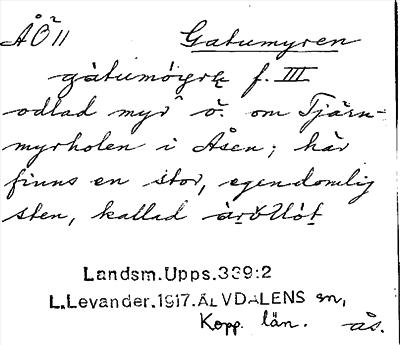 ÅÖ 11 Gatumyren
f. III
odlad myr ö. om Tjärn-
myrholen i Åsen; här
finns en stor, egendomlig
sten, kallad
Landsm.Upps.339:2
L.Levander.1917.ÄLVDALENS sn,
Kopp. län. ås.